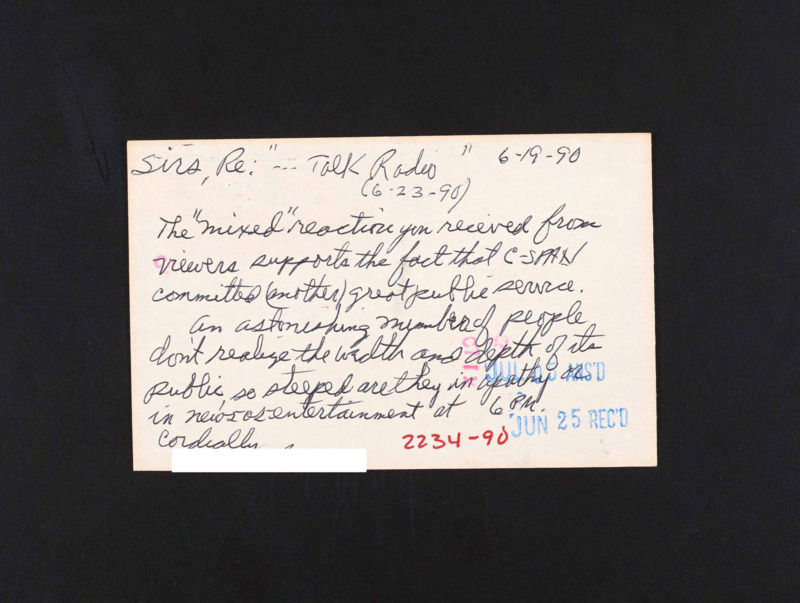 Sirs, Re: "--- Talk Radio" 6-19-90
(6-23-90)
The "mixed" reaction you recieved from
viewers supports the fact that C-SPAN
committed (another) great public service.
An astonishing number of people
don't realize the width and depth of its
public, so steeped are they in apathy or
in news-as-entertainment at 6 PM.
Cordially
2234-90
JUL 05 ANS'D
JUN 25 REC'D